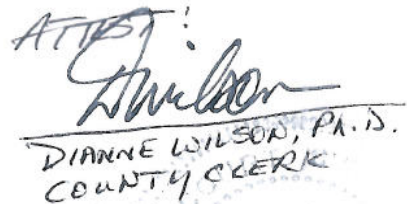 ATTEST:
DWilson
DIANNE WILSON, Ph.D.
COUNTY CLERK